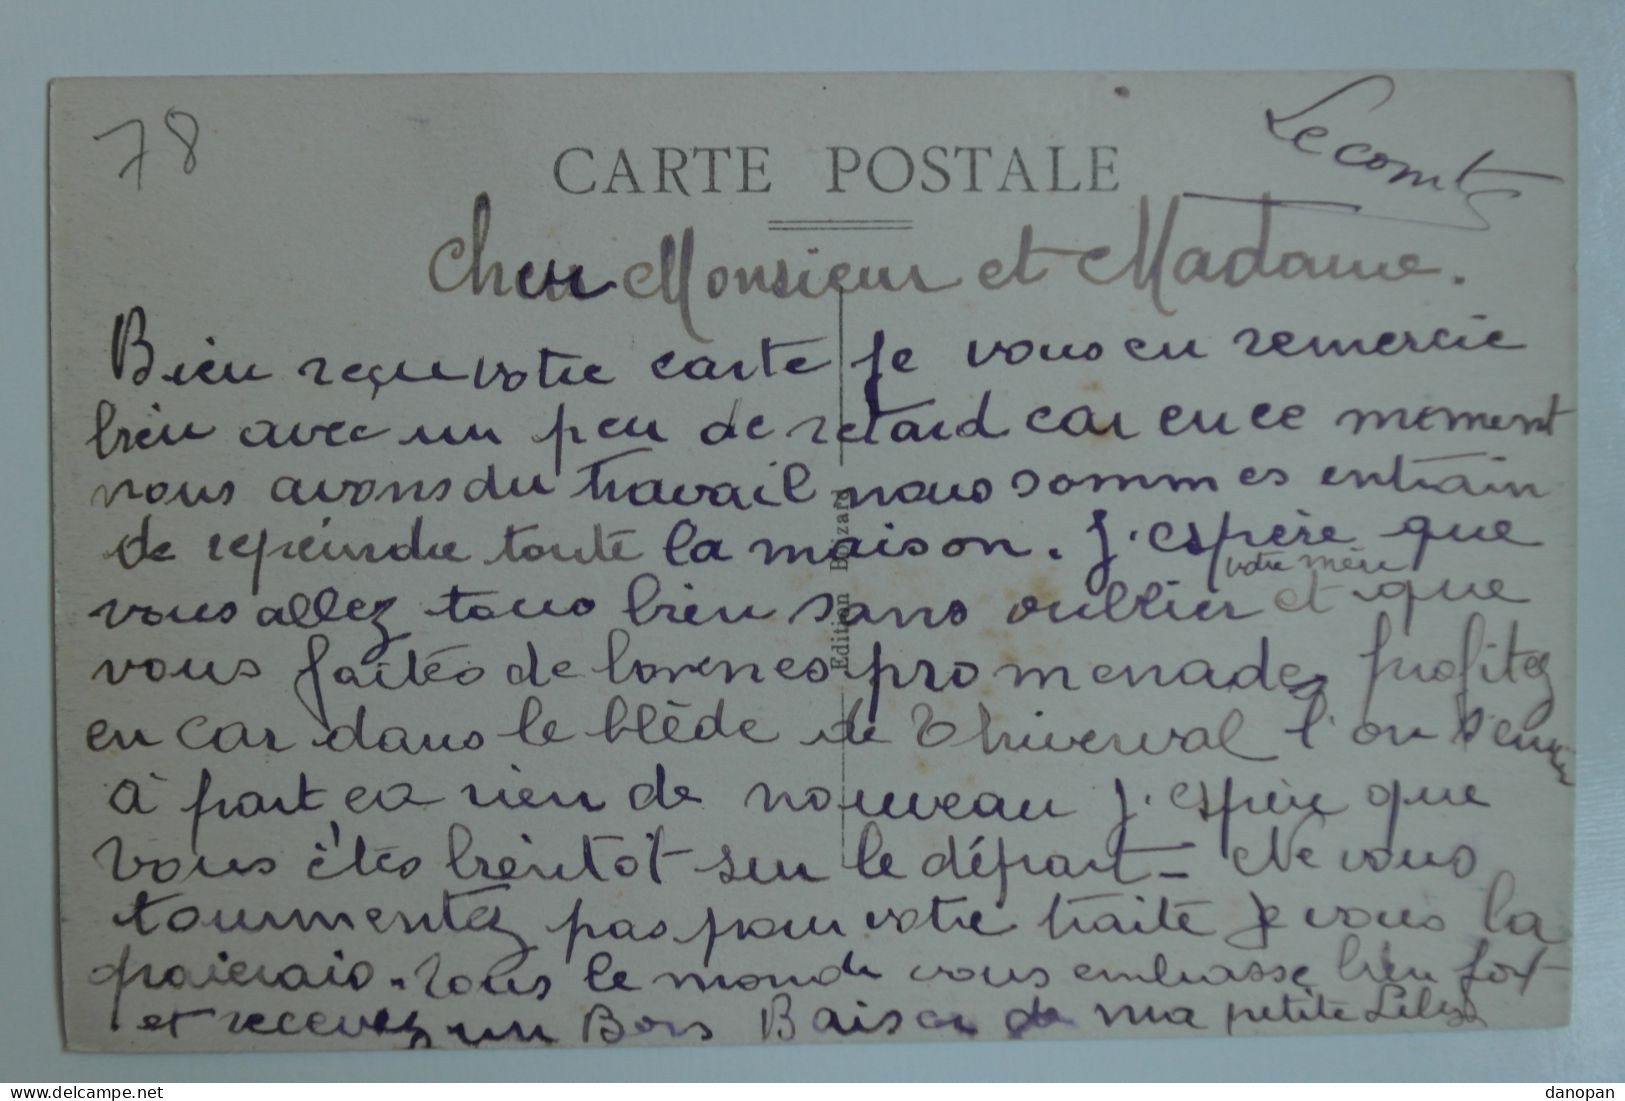 78
Lecomte
CARTE POSTALE
Cher Monsieur et Madame.
Bien reçu votre carte je vous en remercie
bien avec un peu de retard car en ce moment
nous avons du travail nous sommes entrain
de repeindre toute la maison. J'espère que
votre mère
vous allez tous bien sans oublier et que
vous faités de bonnes promenades profitez
en car dans le blède de Thiverval l'on s'ennui
à part ca rien de nouveau j'espère que
vous êtes bientôt sur le départ - Ne vous
tourmentez pas pour votre traite je vous la
paierais. Tous le monde vous embrasse bien fort
et recevez un Bons Baiser de ma petite
Edition Bizard
https://www.delcampe.net
danopan